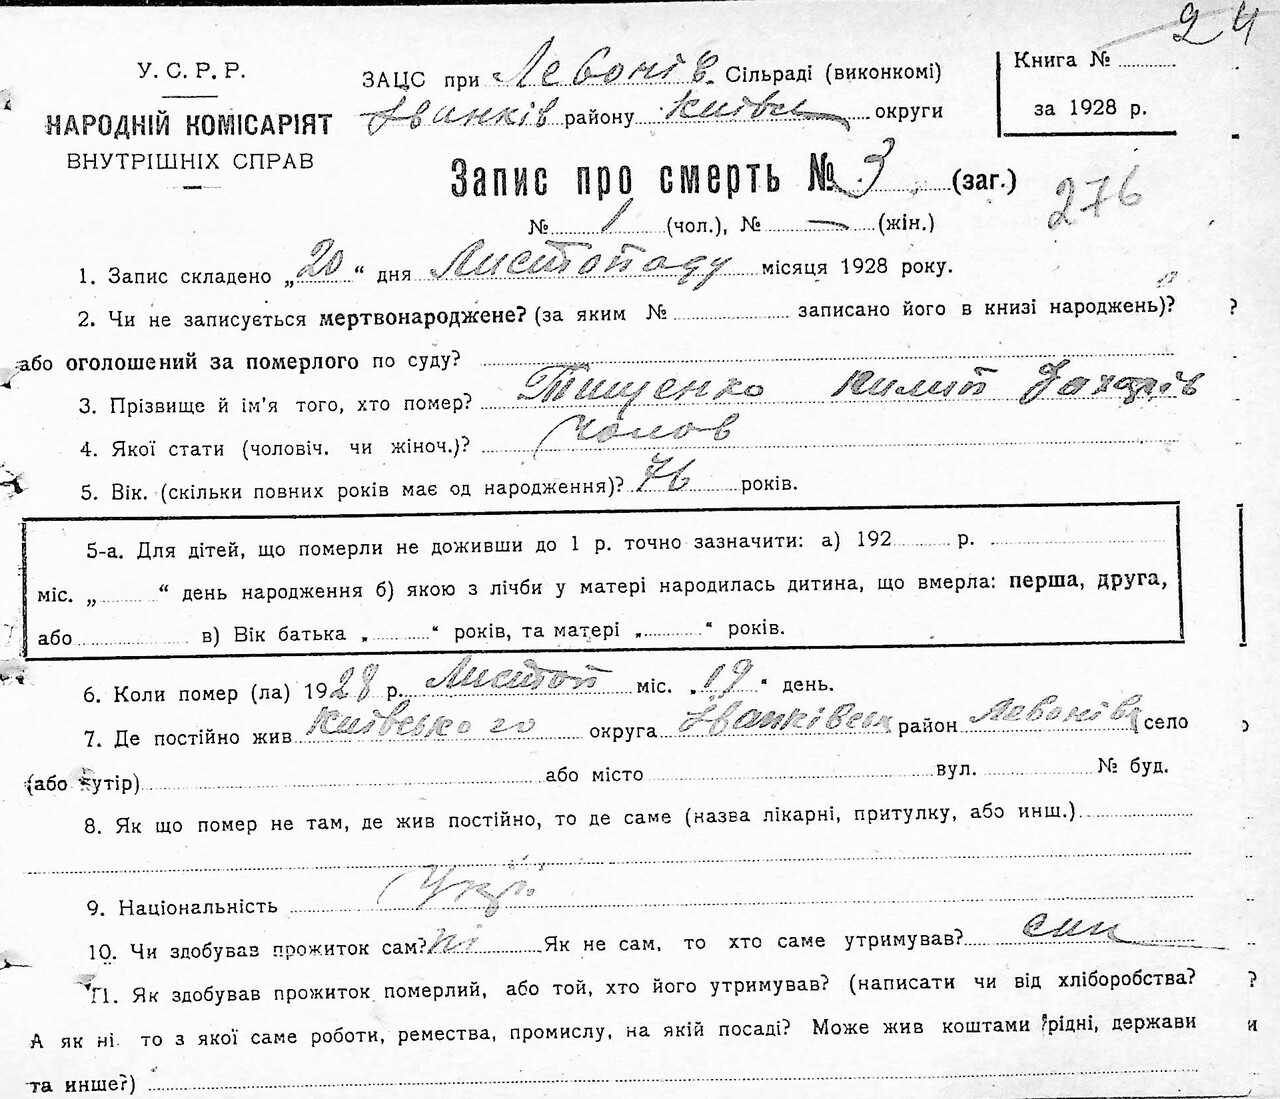 24
У. С. Р. Р.
НАРОДНІЙ КОМІСАРІЯТ
ВНУТРІШНІХ СПРАВ
ЗАЦС при Левонів. Сільраді (виконкомі)
Іванків району Київськ округи
Книга №
за 1928 р.
Запис про смерть № 3 (заг.)
276
№ 1 (чол.), № — (жін.)
1. Запис складено „20“ дня Листопаду місяця 1928 року.
2. Чи не записується мертвонароджене? (за яким № записано його в книзі народжень)?
або оголошений за померлого по суду?
3. Прізвище й ім'я того, хто помер? Тищенко Килип Захарів
4. Якої стати (чоловіч. чи жіноч.)? чолов
5. Вік. (скільки повних років має од народження)? 76 років.
5-а. Для дітей, що померли не доживши до 1 р. точно зазначити: а) 192 р.
міс. „ “ день народження б) якою з лічби у матері народилась дитина, що вмерла: перша, друга,
або в) Вік батька „ “ років, та матері „ “ років.
6. Коли помер (ла) 1928 р. Листоп міс. „19“ день.
7. Де постійно жив Київського округа Іванківськ район Левонівк село
(або хутір) або місто вул. № буд.
8. Як що помер не там, де жив постійно, то де саме (назва лікарні, притулку, або инш.)
9. Національність Укр.
10. Чи здобував прожиток сам? ні Як не сам, то хто саме утримував? син
11. Як здобував прожиток померлий, або той, хто його утримував? (написати чи від хліборобства?
А як ні то з якої саме роботи, ремества, промислу, на якій посаді? Може жив коштами рідні, держави
та инше?)